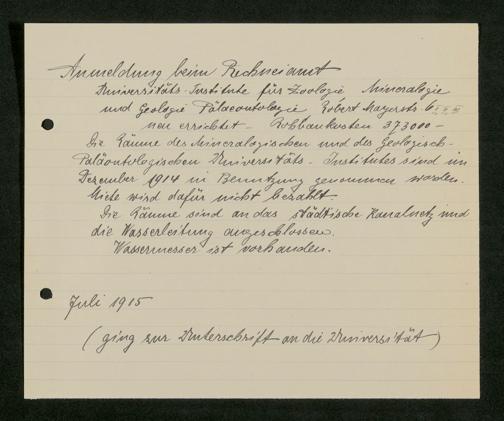 Anmeldung beim Rechneiamt
Universitäts-Institute für Zoologie Mineralogie
und Geologie Paläontologie Robert Mayerstr. 6
neu errichtet – Rohbaukosten 373000 –
Die Räume des Mineralogischen und des Geologisch-
Paläontologischen Universitäts-Institutes sind im
Dezember 1914 in Benutzung genommen worden.
Miete wird dafür nicht bezahlt.
Die Räume sind an das städtische Kanalnetz und
die Wasserleitung angeschlossen.
Wassermesser ist vorhanden.
Juli 1915
(ging zur Unterschrift an die Universität)